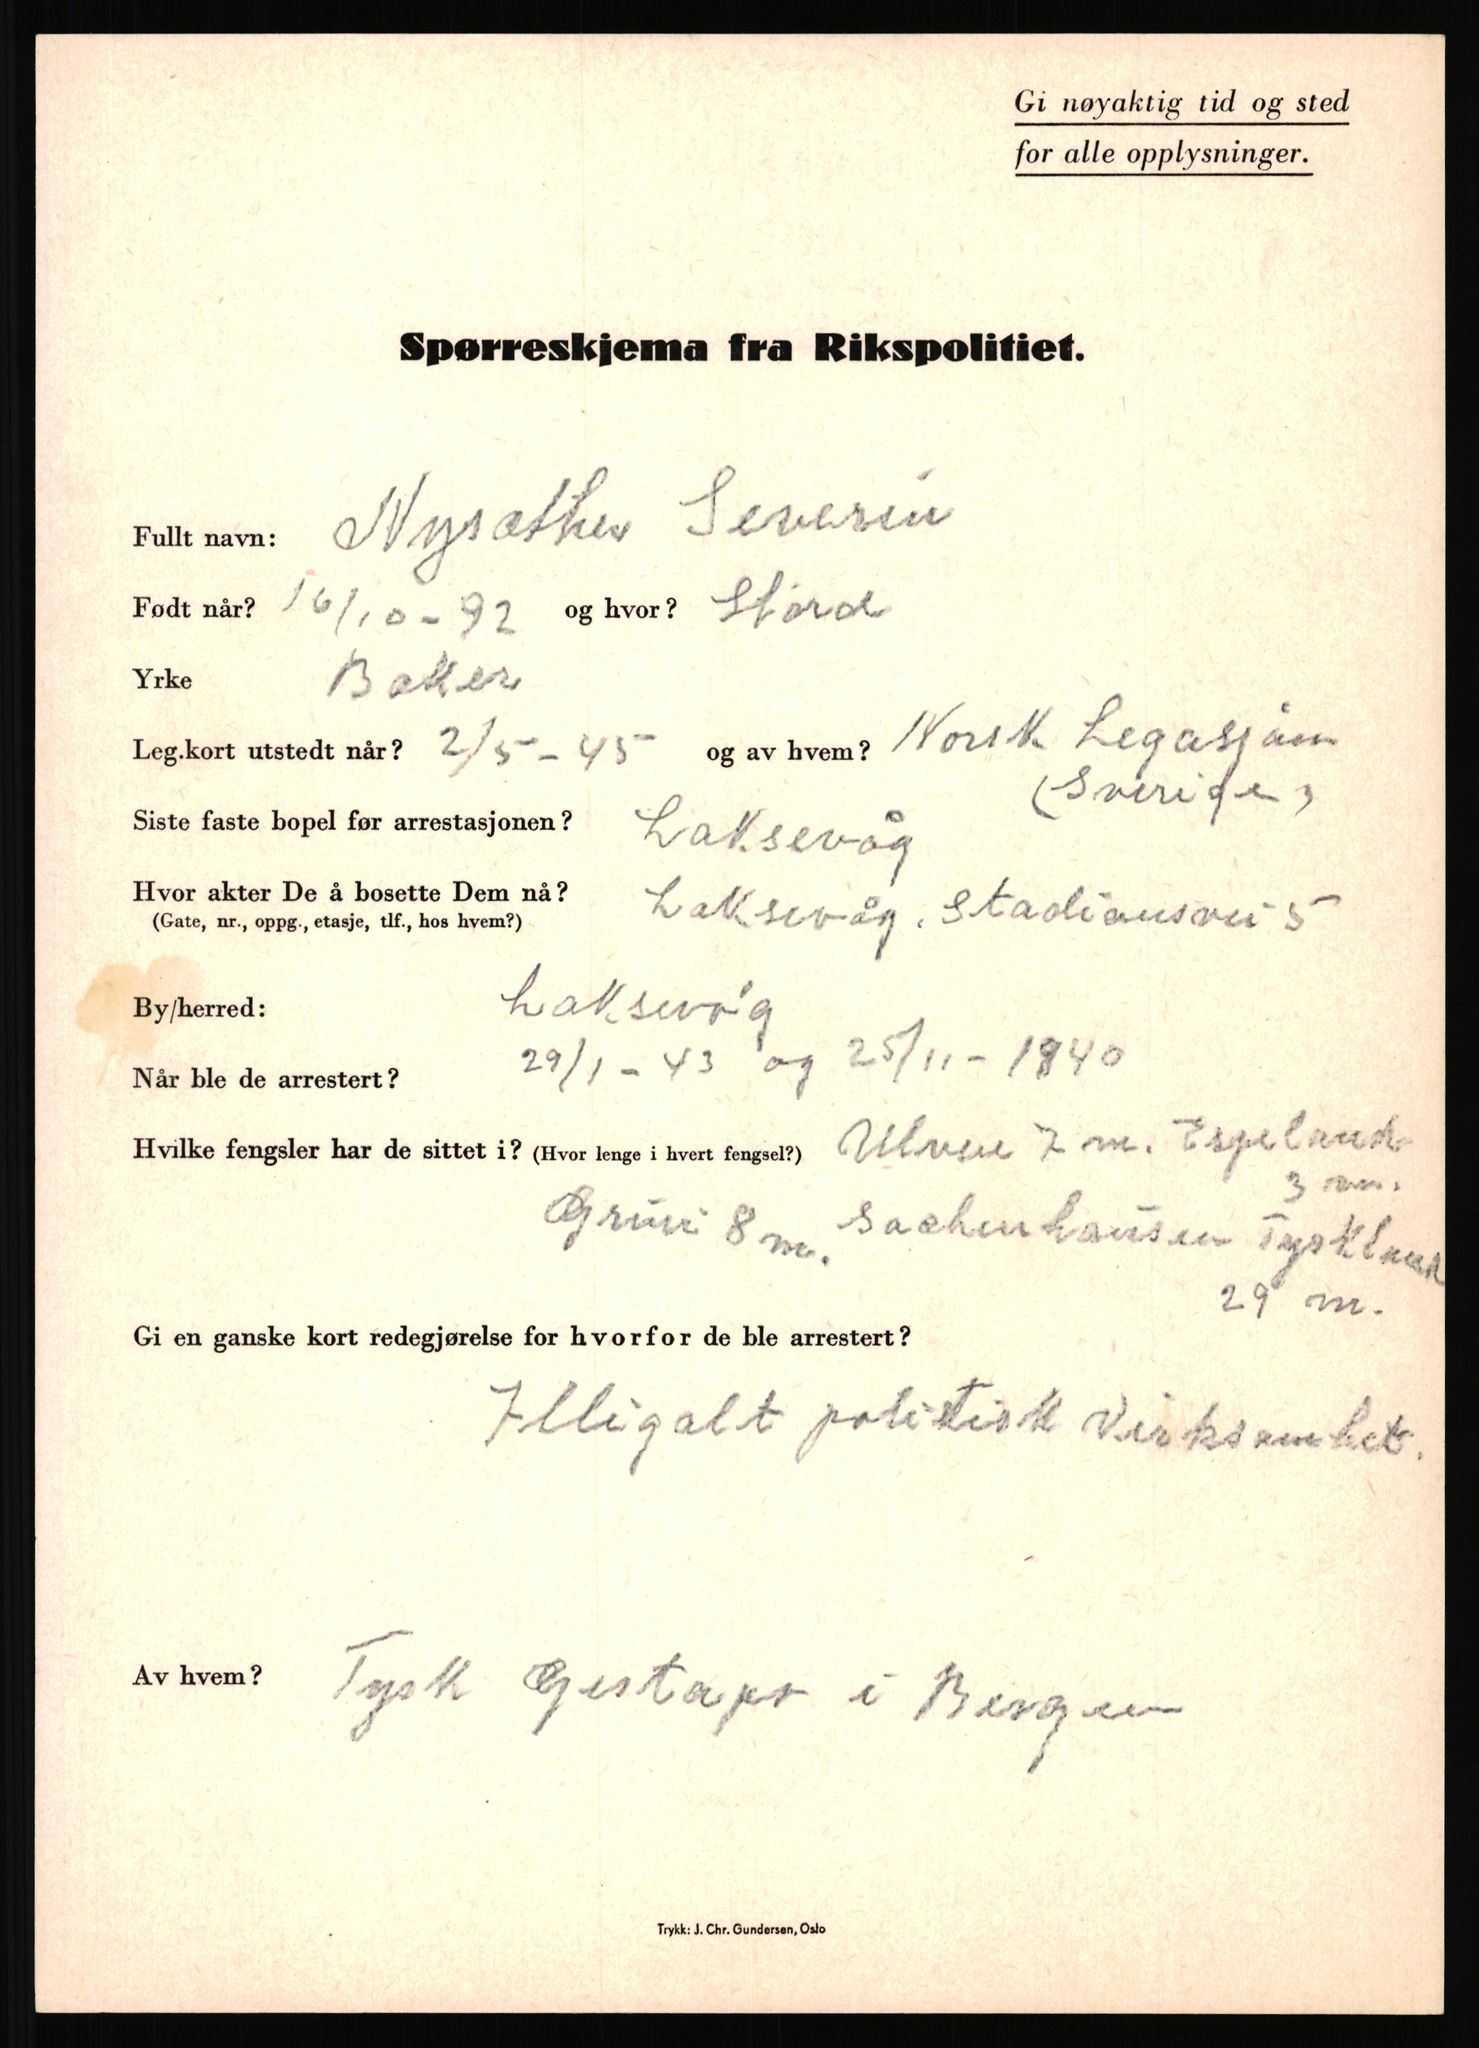 Gi nøyaktig tid og sted
for alle opplysninger.
Spørreskjema fra Rikspolitiet.
Fullt navn: Nysæther Severin
Født når? 16/10-92 og hvor? Stord
Yrke Baker
Leg.kort utstedt når? 2/5-45 og av hvem? Norsk Legasjon
(Sverige)
Siste faste bopel før arrestasjonen? Laksevåg
Hvor akter De å bosette Dem nå? Laksevåg. Stadionsvei 5
(Gate, nr., oppg., etasje, tlf., hos hvem?)
By/herred: Laksevåg
Når ble de arrestert? 29/1-43 og 25/11-1940
Hvilke fengsler har de sittet i? (Hvor lenge i hvert fengsel?) Ulven 7 m. Espeland
3 m.
Grini 8 m. Sachenhausen Tyskland
29 m.
Gi en ganske kort redegjørelse for hvorfor de ble arrestert?
Illigalt politisk Virksomhet.
Av hvem? Tysk Gestapo i Bergen
Trykk: J. Chr. Gundersen, Oslo